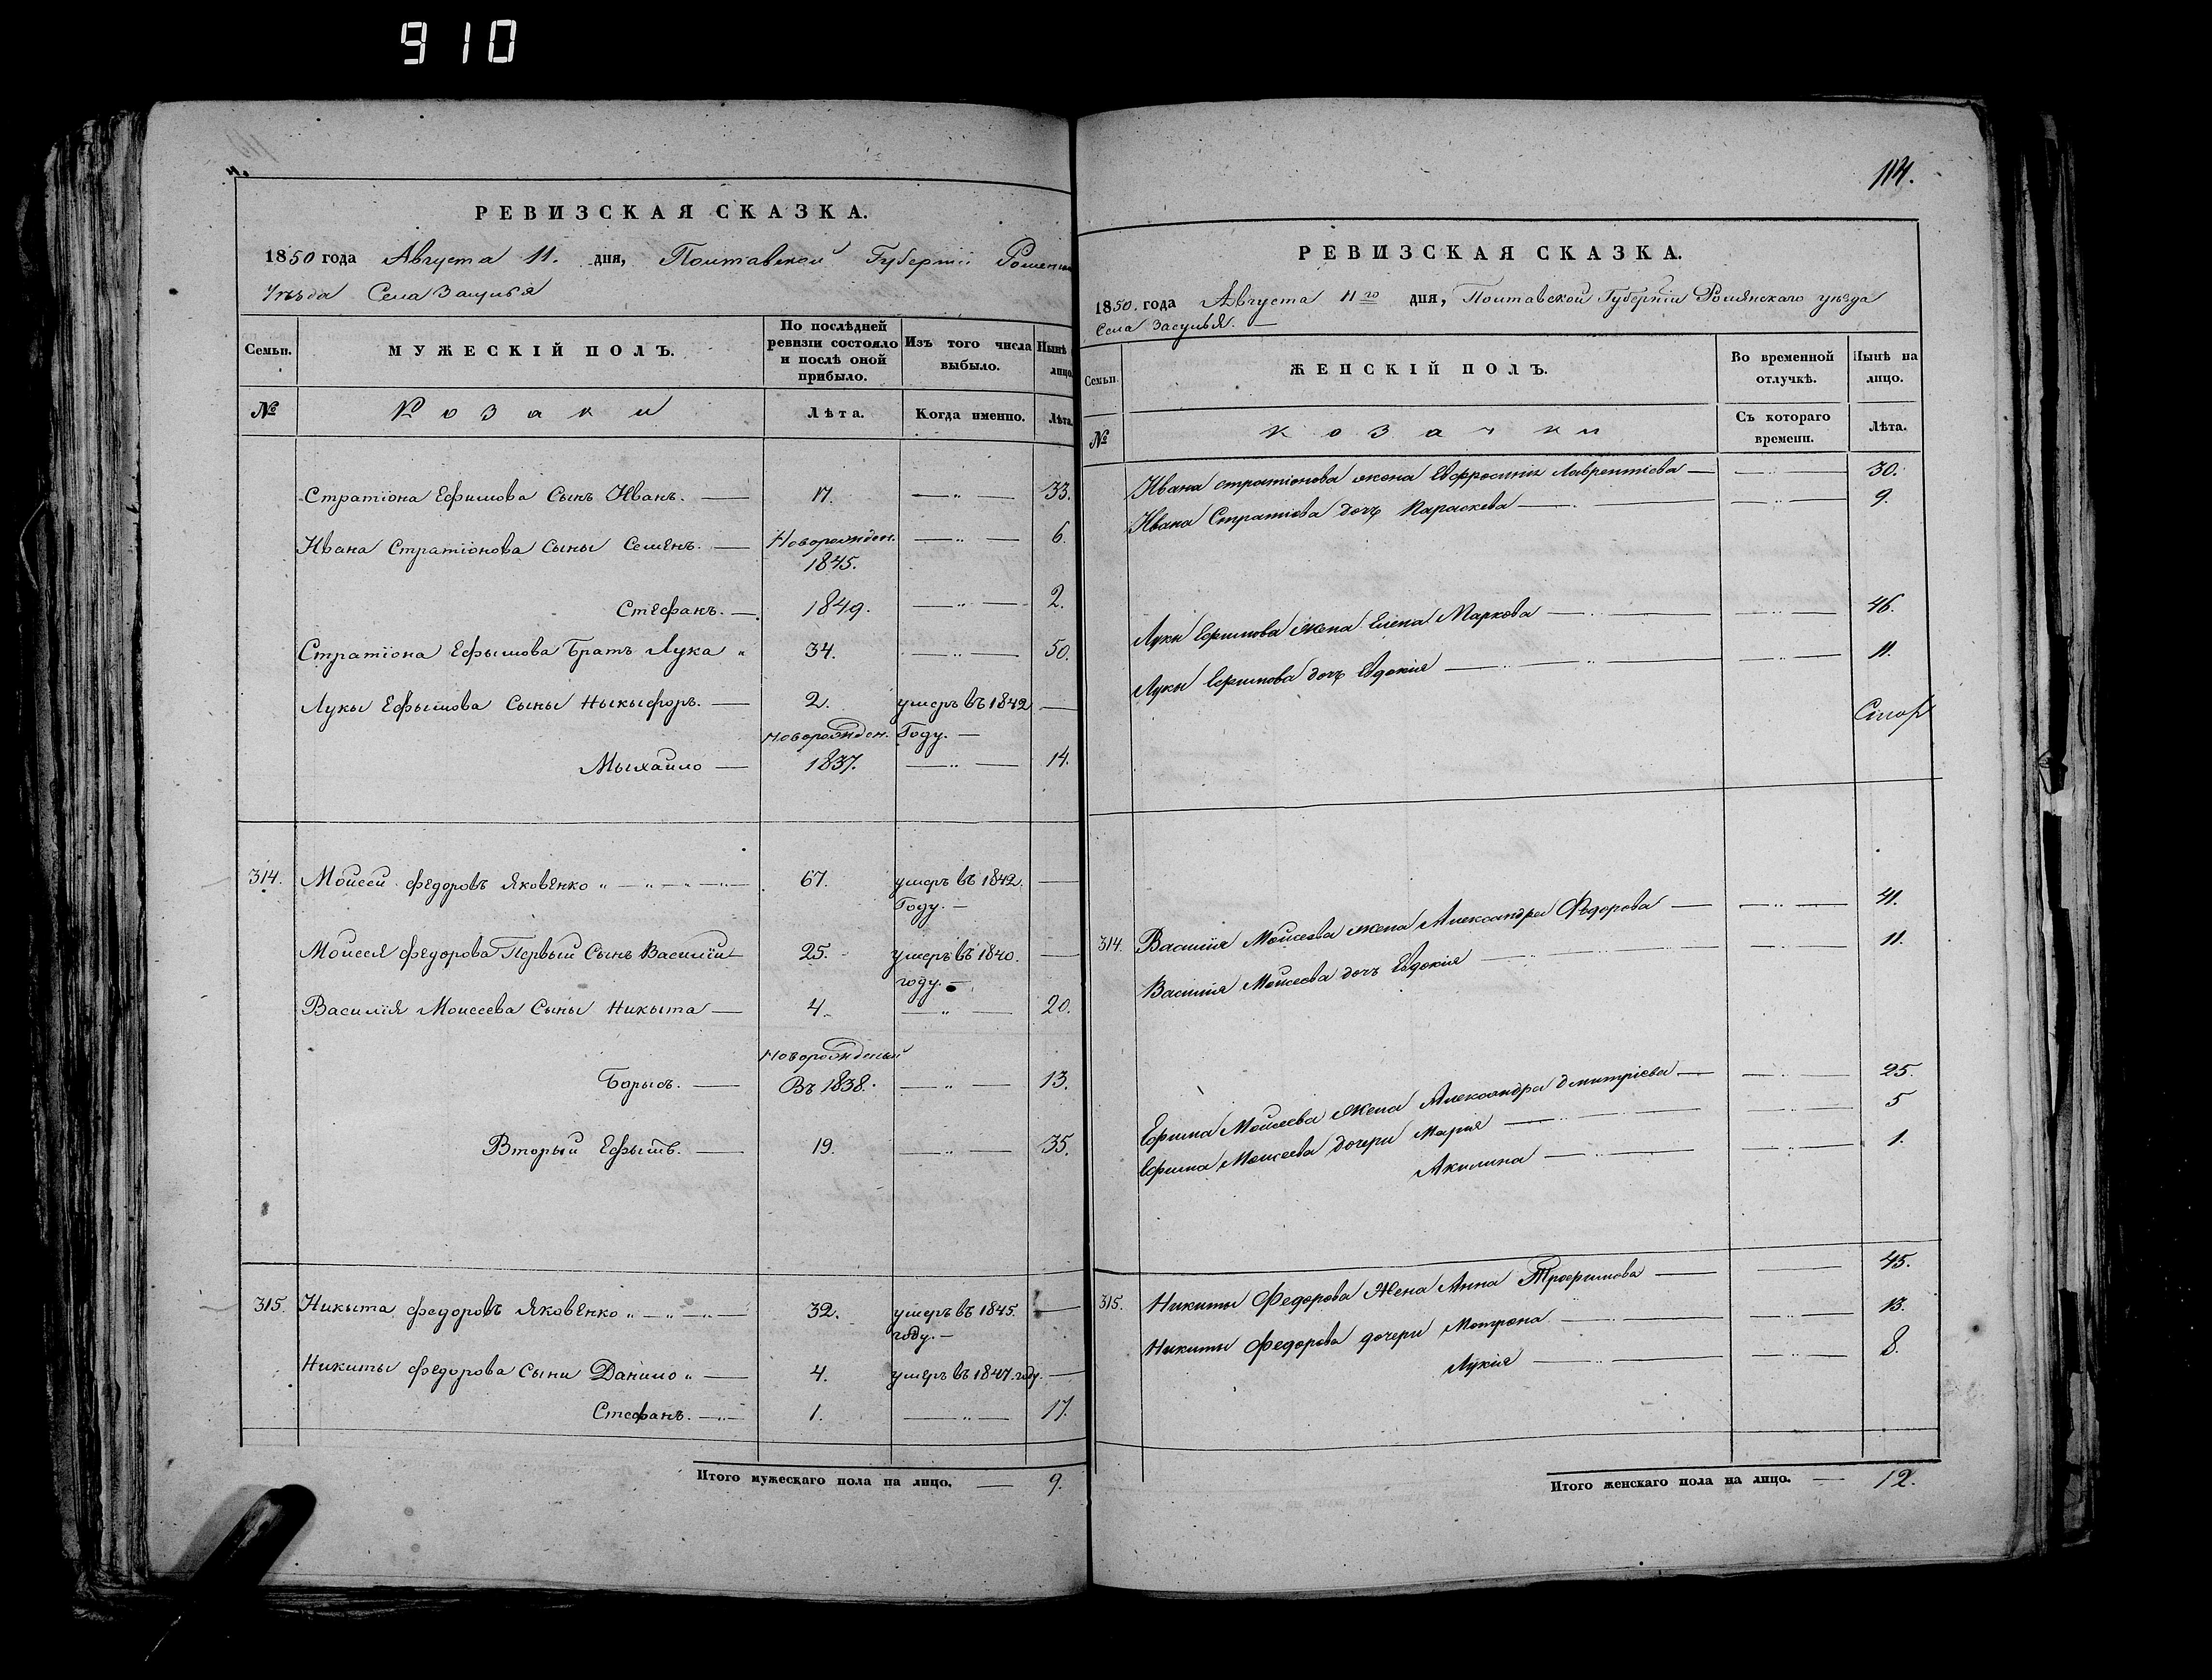 910
РЕВИЗСКАЯ СКАЗКА.
1850 года Августа 11. дня, Полтавской Губернии
Уѣзда Села Засулья
Семьи. МУЖЕСКІЙ ПОЛЪ. По послѣдней ревизіи состояло и послѣ оной прибыло. Изъ того числа выбыло. Нынѣ лицо
№ Козаки Лѣта. Когда именно. Лѣта.
Стратіона Ефимова Сынъ Иванъ. 17. 33.
Ивана Стратіонова Сыны Семенъ. Новорожден. 6.
1845.
Стефанъ. 1849. 2.
Стратіона Ефымова Братъ Лука 34. 50.
Лукы Ефымова Сыны Ныкыфоръ. 2. умеръ въ 1842
Новорожден. Году.
Мыхайло 1837. 14.
314. Моисей Федоровъ Яковенко 67. умеръ въ 1842.
Году.
Моисея Федорова Первый Сынъ Василій 25. умеръ въ 1840.
году.
Василія Моисеева Сыны Никыта 4. 20.
Новорожденый
Борысъ. Въ 1838. 13.
Вторый Ефымъ. 19. 35.
315. Никыта Федоровъ Яковенко 32. умеръ въ 1845.
году.
Никиты Федорова Сыни Данило 4. умеръ въ 1847. году.
Стефанъ. 1. 17.
Итого мужескаго пола на лицо. 9.
114.
РЕВИЗСКАЯ СКАЗКА.
1850. года Августа 11го дня, Полтавской Губерніи Роменскаго уѣзда
Села Засулья.
Семьи ЖЕНСКІЙ ПОЛЪ. Во временной отлучкѣ. Нынѣ на лицо.
№ Козачки Съ котораго времени. Лѣта.
Ивана Стратіонова жена Евфросинія Лаврентіева 30.
Ивана Стратіова дочь Параскева 9.
Луки Ефимова жена Елена Маркова 46.
Луки Ефимова дочь Евдокія 11.
314. Василія Моисеева жена Александра Федорова 41.
Василія Моисеева дочь Евдокія 11.
Ефима Моисеева жена Александра Дмитріева 25.
Ефима Моисеева дочери Марія 5
Акилина 1.
315. Никиты Федорова Жена Анна Трофимова 45.
Никиты Федорова дочери Мотрона 13.
Лукія 8.
Итого женскаго пола на лицо. 12.